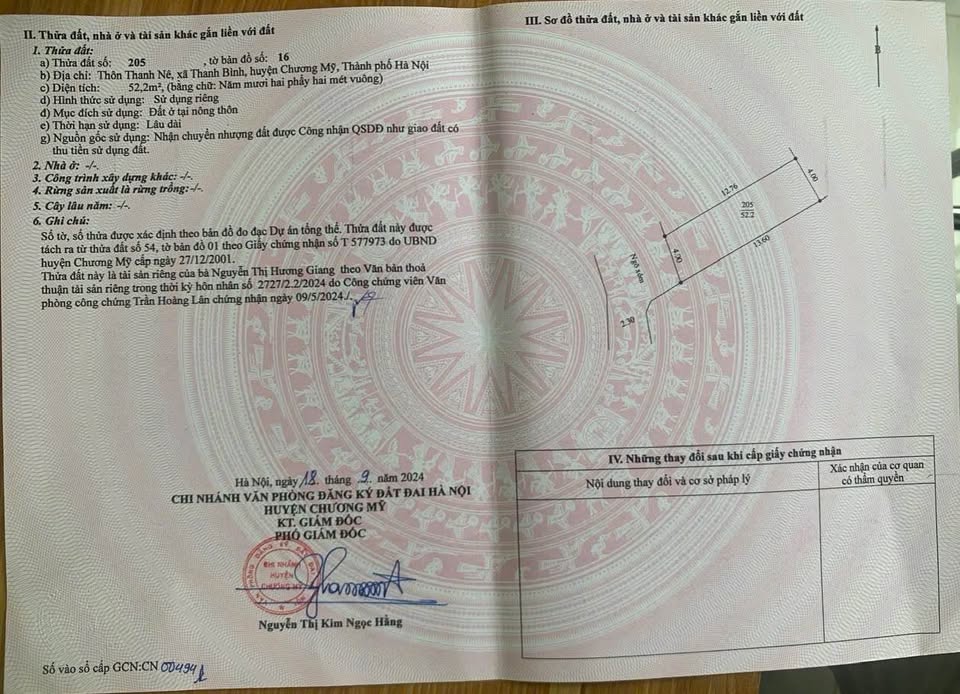 II. Thửa đất, nhà ở và tài sản khác gắn liền với đất
1. Thửa đất:
a) Thửa đất số: 205 , tờ bản đồ số: 16
b) Địa chỉ: Thôn Thanh Nê, xã Thanh Bình, huyện Chương Mỹ, Thành phố Hà Nội
c) Diện tích: 52,2m², (bằng chữ: Năm mươi hai phẩy hai mét vuông)
d) Hình thức sử dụng: Sử dụng riêng
đ) Mục đích sử dụng: Đất ở tại nông thôn
e) Thời hạn sử dụng: Lâu dài
g) Nguồn gốc sử dụng: Nhận chuyển nhượng đất được Công nhận QSDĐ như giao đất có
thu tiền sử dụng đất.
2. Nhà ở: -/-.
3. Công trình xây dựng khác: -/-.
4. Rừng sản xuất là rừng trồng:-/-.
5. Cây lâu năm: -/-.
6. Ghi chú:
Số tờ, số thửa được xác định theo bản đồ đo đạc Dự án tổng thể. Thửa đất này được
tách ra từ thửa đất số 54, tờ bản đồ 01 theo Giấy chứng nhận số T 577973 do UBND
huyện Chương Mỹ cấp ngày 27/12/2001.
Thửa đất này là tài sản riêng của bà Nguyễn Thị Hương Giang theo Văn bản thoả
thuận tài sản riêng trong thời kỳ hôn nhân số 2727/2.2/2024 do Công chứng viên Văn
phòng công chứng Trần Hoàng Lân chứng nhận ngày 09/5/2024./.
Hà Nội, ngày 18 tháng 9 năm 2024
CHI NHÁNH VĂN PHÒNG ĐĂNG KÝ ĐẤT ĐAI HÀ NỘI
HUYỆN CHƯƠNG MỸ
KT. GIÁM ĐỐC
PHÓ GIÁM ĐỐC
CHI NHÁNH
HUYỆN
CHƯƠNG MỸ
Nguyễn Thị Kim Ngọc Hằng
Số vào sổ cấp GCN:CN 00494
III. Sơ đồ thửa đất, nhà ở và tài sản khác gắn liền với đất
B
12.76
4.00
205
52.2
4.00
13.60
Ngõ xóm
2.30
IV. Những thay đổi sau khi cấp giấy chứng nhận
Nội dung thay đổi và cơ sở pháp lý
Xác nhận của cơ quan
có thẩm quyền